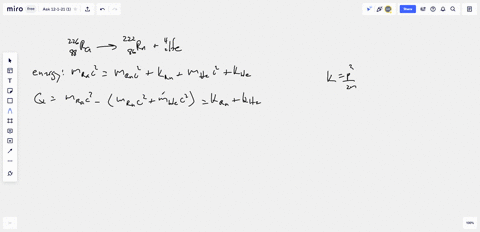 miro Free Ask 12-1-21 (1) Share
²²⁶₈₈Ra → ²²²₈₆Rn + ⁴₂He
energy: m_Ra c² = m_Rn c² + K_Rn + m_He c² + K_He
K = p²/2m
Q = m_Ra c² - (m_Rn c² + m_He c²) = K_Rn + K_He
100%